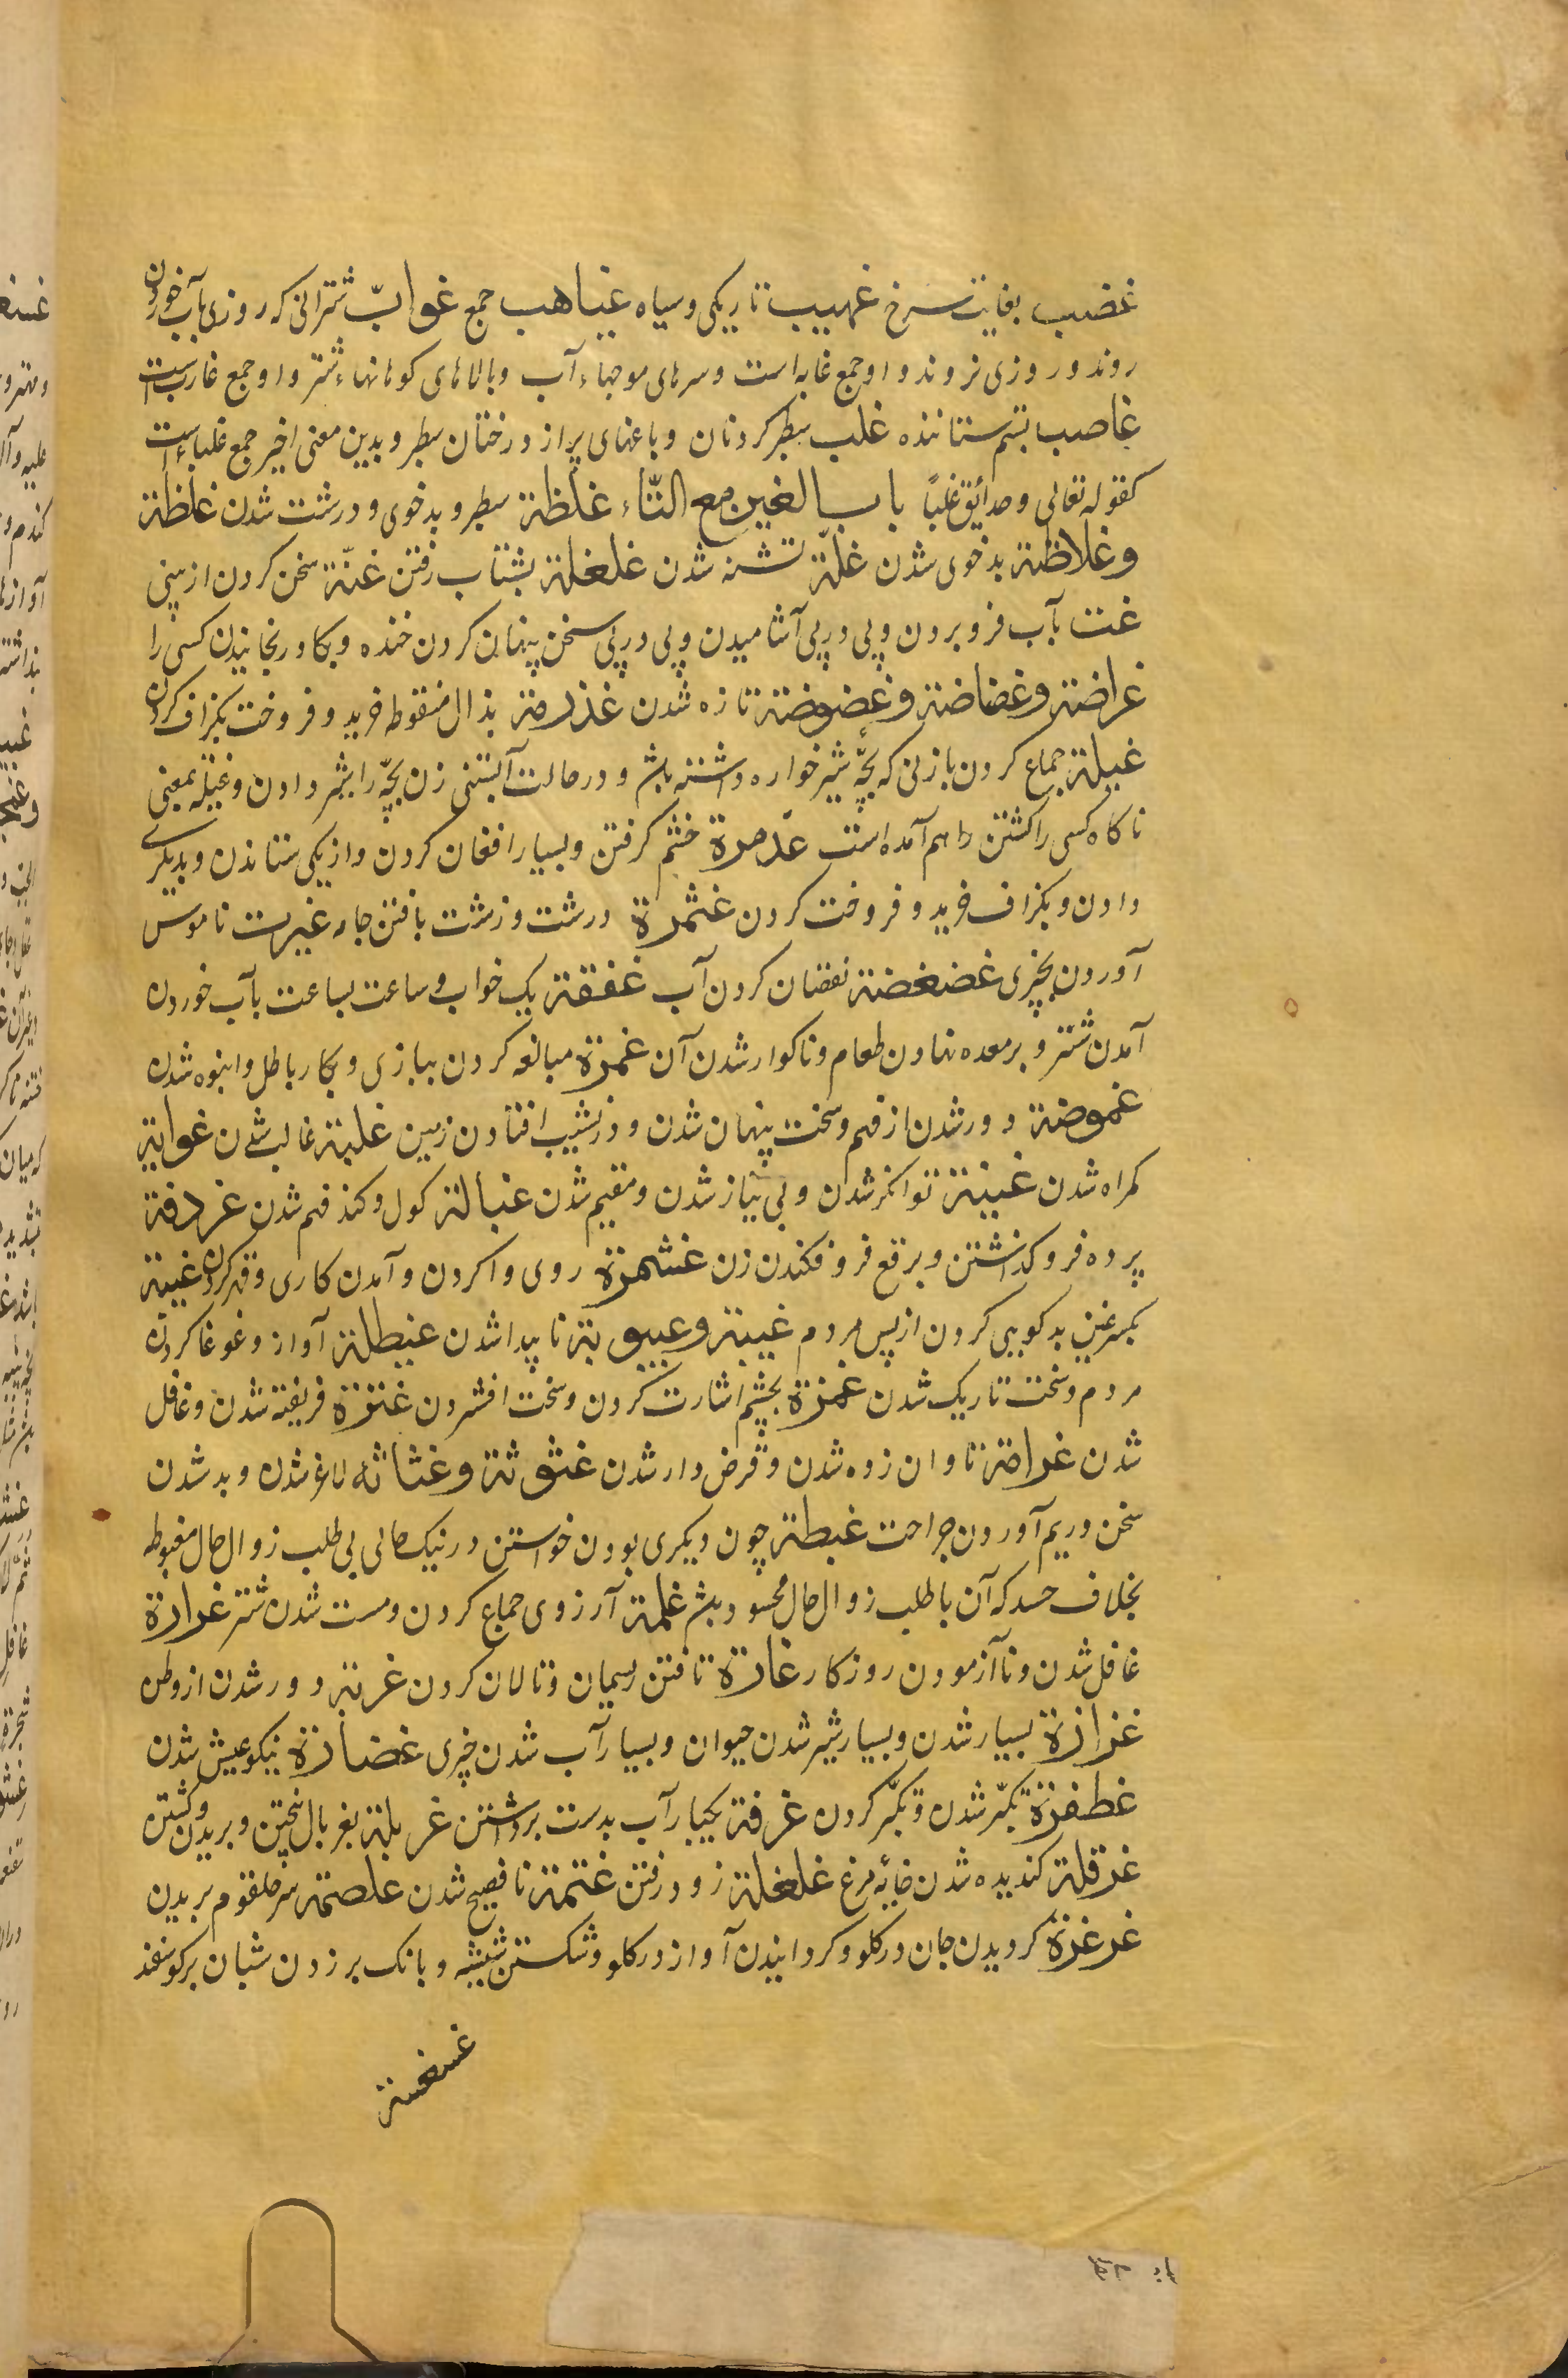 غضب بغایت سرخ غیهب تاریکی و سیاه غیاهب جمع غوابّ شترانی که روزی بآب خوردن
روند و روزی نروند و او جمع غابه است و سرهای موجهاء آب و بالاهای کوهانهاء شتر و او جمع غارب است
غاصب بستم ستاننده غلب سطبر کردنان و باغهای پر از درختان سطبر و بدین معنی اخیر جمع غلباء است
کقوله تعالی و حدائق غلباً باب الغین مع التّاء غلظة سطبر و بدخوی و درشت شدن غلظة
وغلاظة بدخوی شدن غلّة تشنه شدن غلغلة بشتاب رفتن غنّة سخن کردن از بینی
غت بآب فرو بردن و پی در پی آشامیدن و پی در پی سخن پنهان کردن خنده و بکا و رنجانیدن کسی را
غراضة وغضاضة وغضوضة تازه شدن غذرمة بذال منقوطه خرید و فروخت بکزاف کردن
غیلة جماع کردن با زنی که بچّه شیرخواره داشته باشد و در حالت آبستنی زن بچّه را شیر دادن و غیلة بمعنی
ناکاه کسی را کشتن را هم آمده است غذمرة خشم کرفتن و بسیار افغان کردن و از یکی ستاندن و بدیکری
دادن و بکزاف خرید و فروخت کردن غثمرة درشت و زشت بافتن جامه غیرت ناموس
آوردن بچیزی غضغضة نقصان کردن آب غفقة یک خواب و ساعت بساعت بآب خوردن
آمدن شتر و بر معده نهادن طعام و ناکوار شدن آن غمرة مبالغه کردن ببازی و بکار باطل و انبوه شدن
غموضة دور شدن از فهم و سخت پنهان شدن و در نشیب افتادن زمین غلبة غالب شدن غوایة
کمراه شدن غنیة توانکر شدن و بی نیاز شدن و مقیم شدن غبالة کول و کند فهم شدن غردفة
پرده فرو کذاشتن و برقع فرو فکندن زن غشمرة روی وا کردن و آمدن کاری و قهر کردن غیبة
بکسر غین بدکویی کردن از پس مردم غیبة وغیبوبة ناپیدا شدن غیطلة آواز و غوغا کردن
مردم و سخت تاریک شدن غمزة بچشم اشارت کردن و سخت افشردن غرّة فریفته شدن و غافل
شدن غرامة تاوان زده شدن و قرض دار شدن غثوثة وغثاثه لاغر شدن و بد شدن
سخن و ریم آوردن جراحت غبطة چون دیکری بودن خواستن در نیک حالی بی طلب زوال حال مغبوط
بخلاف حسد که آن با طلب زوال حال محسود باشد غلمة آرزوی جماع کردن و مست شدن شتر غرارة
غافل شدن و نا آزمودن روزکار غارة تافتن ریسمان و تالان کردن غربة دور شدن از وطن
غزارة بسیار شدن و بسیار شیر شدن حیوان و بسیار آب شدن چیزی غضارة نیکو عیش شدن
غطفرة تکبّر شدن و تکبّر کردن غرفة یکبار آب بدست برداشتن غربلة بغربال بیختن و بریدن و کشتن
غرقلة کندیده شدن خایهٔ مرغ غلغلة زود رفتن غتمة نا فصیح شدن غلصمة سر حلقوم بریدن
غرغرة کردیدن جان در کلو و کردانیدن آواز در کلو و شکستن شیشه و بانک بر زدن شبان بر کوسفند